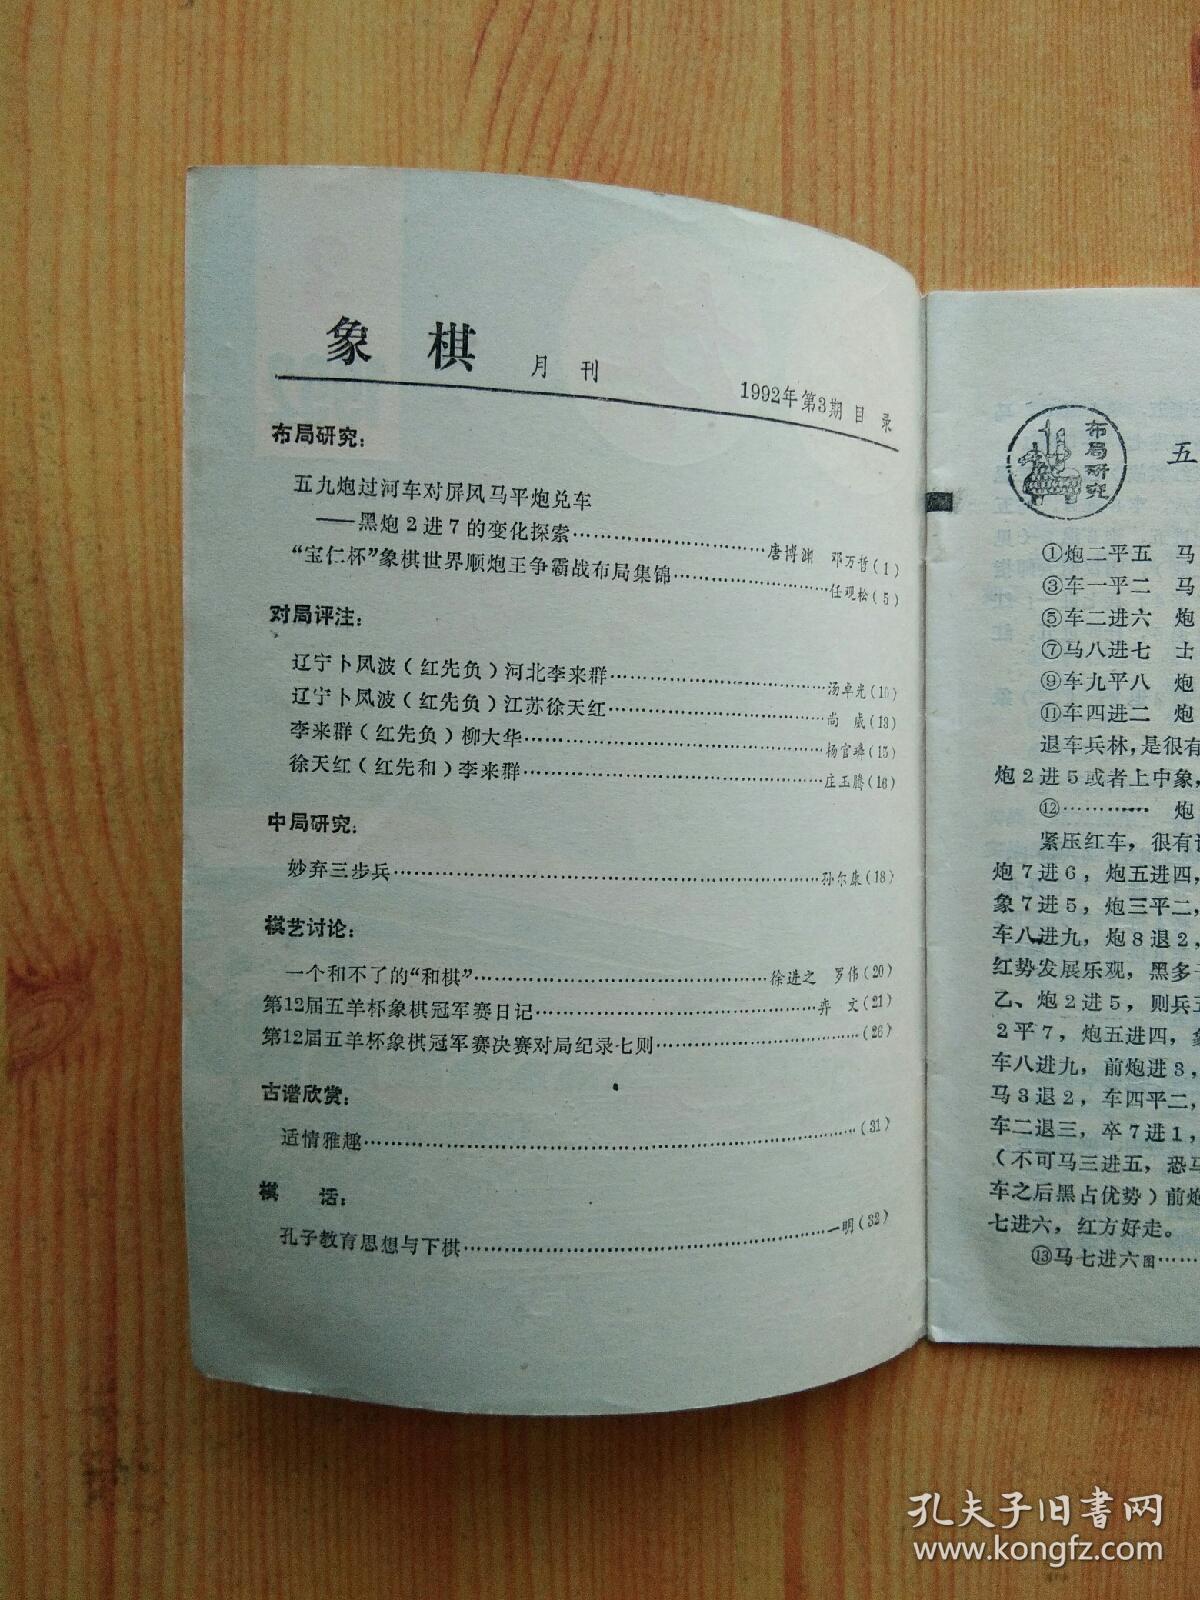 象 棋 月 刊
1992年第3期 目 录
布局研究：
五九炮过河车对屏风马平炮兑车
——黑炮2进7的变化探索………………唐博渊 邓万哲(1)
“宝仁杯”象棋世界顺炮王争霸战布局集锦………………任观松(5)
对局评注：
辽宁卜凤波(红先负)河北李来群………………汤卓光(10)
辽宁卜凤波(红先负)江苏徐天红………………尚 威(13)
李来群(红先负)柳大华………………杨官璘(15)
徐天红(红先和)李来群………………庄玉腾(16)
中局研究：
妙弃三步兵………………孙尔康(18)
棋艺讨论：
一个和不了的“和棋”………………徐进之 罗伟(20)
第12届五羊杯象棋冠军赛日记………………弈 文(21)
第12届五羊杯象棋冠军赛决赛对局纪录七则………………(26)
古谱欣赏：
适情雅趣………………(31)
棋 话：
孔子教育思想与下棋………………一明(32)
布局研究
五
①炮二平五 马
③车一平二 马
⑤车二进六 炮
⑦马八进七 士
⑨车九平八 炮
⑪车四进二 炮
退车兵林，是很有
炮2进5或者上中象，
⑫………… 炮
紧压红车，很有
炮7进6，炮五进四，
象7进5，炮三平二，
车八进九，炮8退2，
红势发展乐观，黑多
乙、炮2进5，则兵五
2平7，炮五进四，
车八进九，前炮进3，
马3退2，车四平二，
车二退三，卒7进1，
（不可马三进五，恐马
车之后黑占优势）前炮
七进六，红方好走。
⑬马七进六图……
孔夫子旧书网
www.kongfz.com